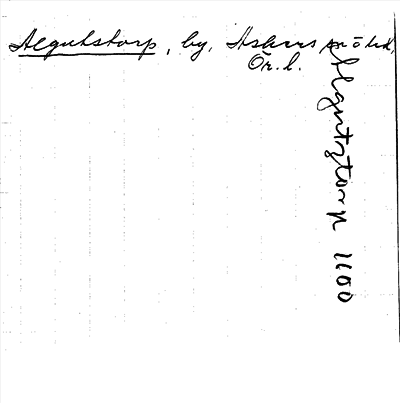 Algutstorp, by, Askers sn o hd,
Ör. l.
Algutztorp 1600